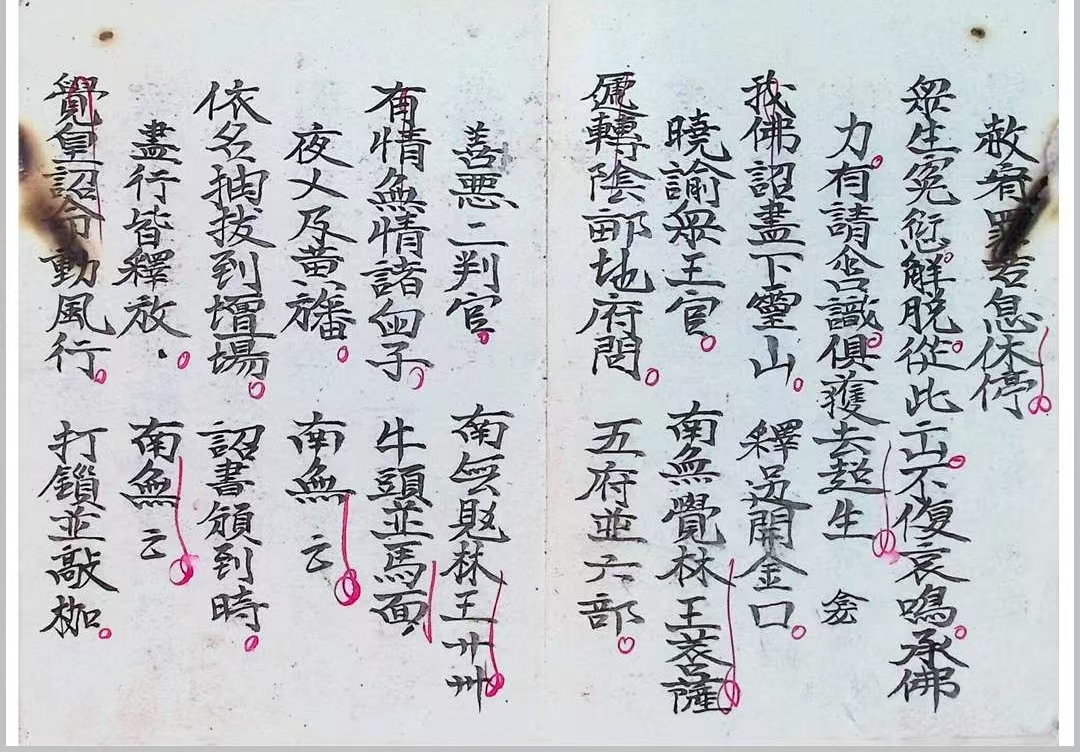 赦宥罪若息休停
眾生冤愆解脫從此亡不復哀鳴承佛
力有請含識俱獲去超生
我佛詔盡下靈山 釋迦開金口
曉諭眾王官 南無覺林王菩薩
遞轉陰酆地府閻 五府並六部
善惡二判官 南無覺林王卅卅
有情無情諸血子 牛頭並馬面
夜乂及黃旛 南無云
依名抽拔到壇場 詔書頒到時
盡行皆釋放 南無云
覺皇詔令動風行 打鎖並敲枷